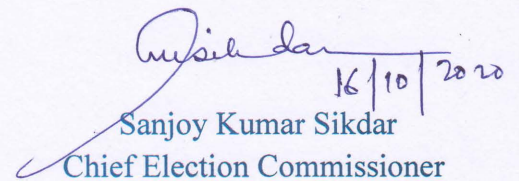 16/10/2020
Sanjoy Kumar Sikdar
Chief Election Commissioner